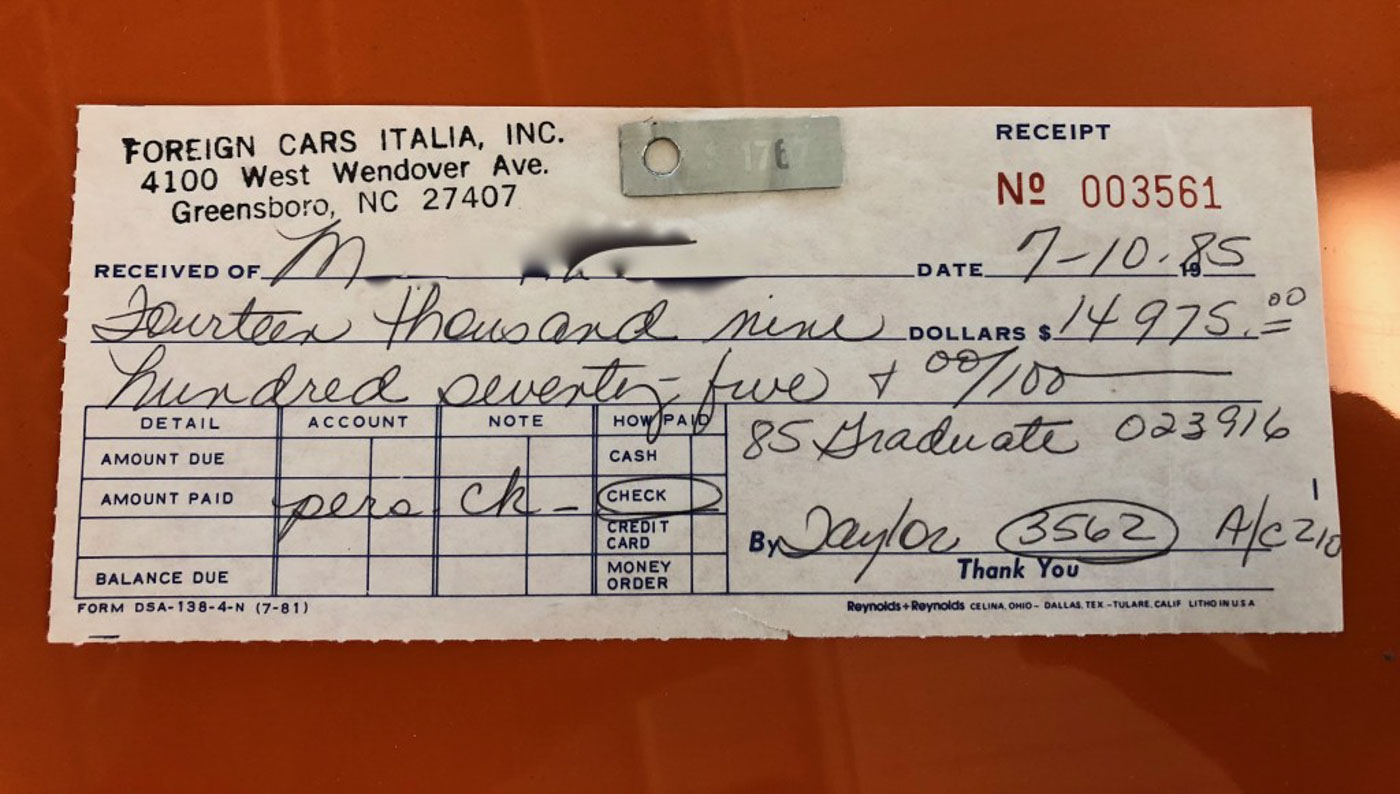 FOREIGN CARS ITALIA, INC.
4100 West Wendover Ave.
Greensboro, NC 27407
RECEIPT
Nº 003561
RECEIVED OF M
DATE 7-10-1985
Fourteen thousand nine DOLLARS $ 14975.00
hundred seventy-five + 00/100
DETAIL ACCOUNT NOTE HOW PAID
AMOUNT DUE CASH
AMOUNT PAID pers ck- CHECK
CREDIT CARD
BALANCE DUE MONEY ORDER
85 Graduate 023916
By Taylor 3562 A/c 210
Thank You
FORM DSA-138-4-N (7-81)
Reynolds+Reynolds CELINA, OHIO - DALLAS, TEX - TULARE, CALIF LITHO IN U S A